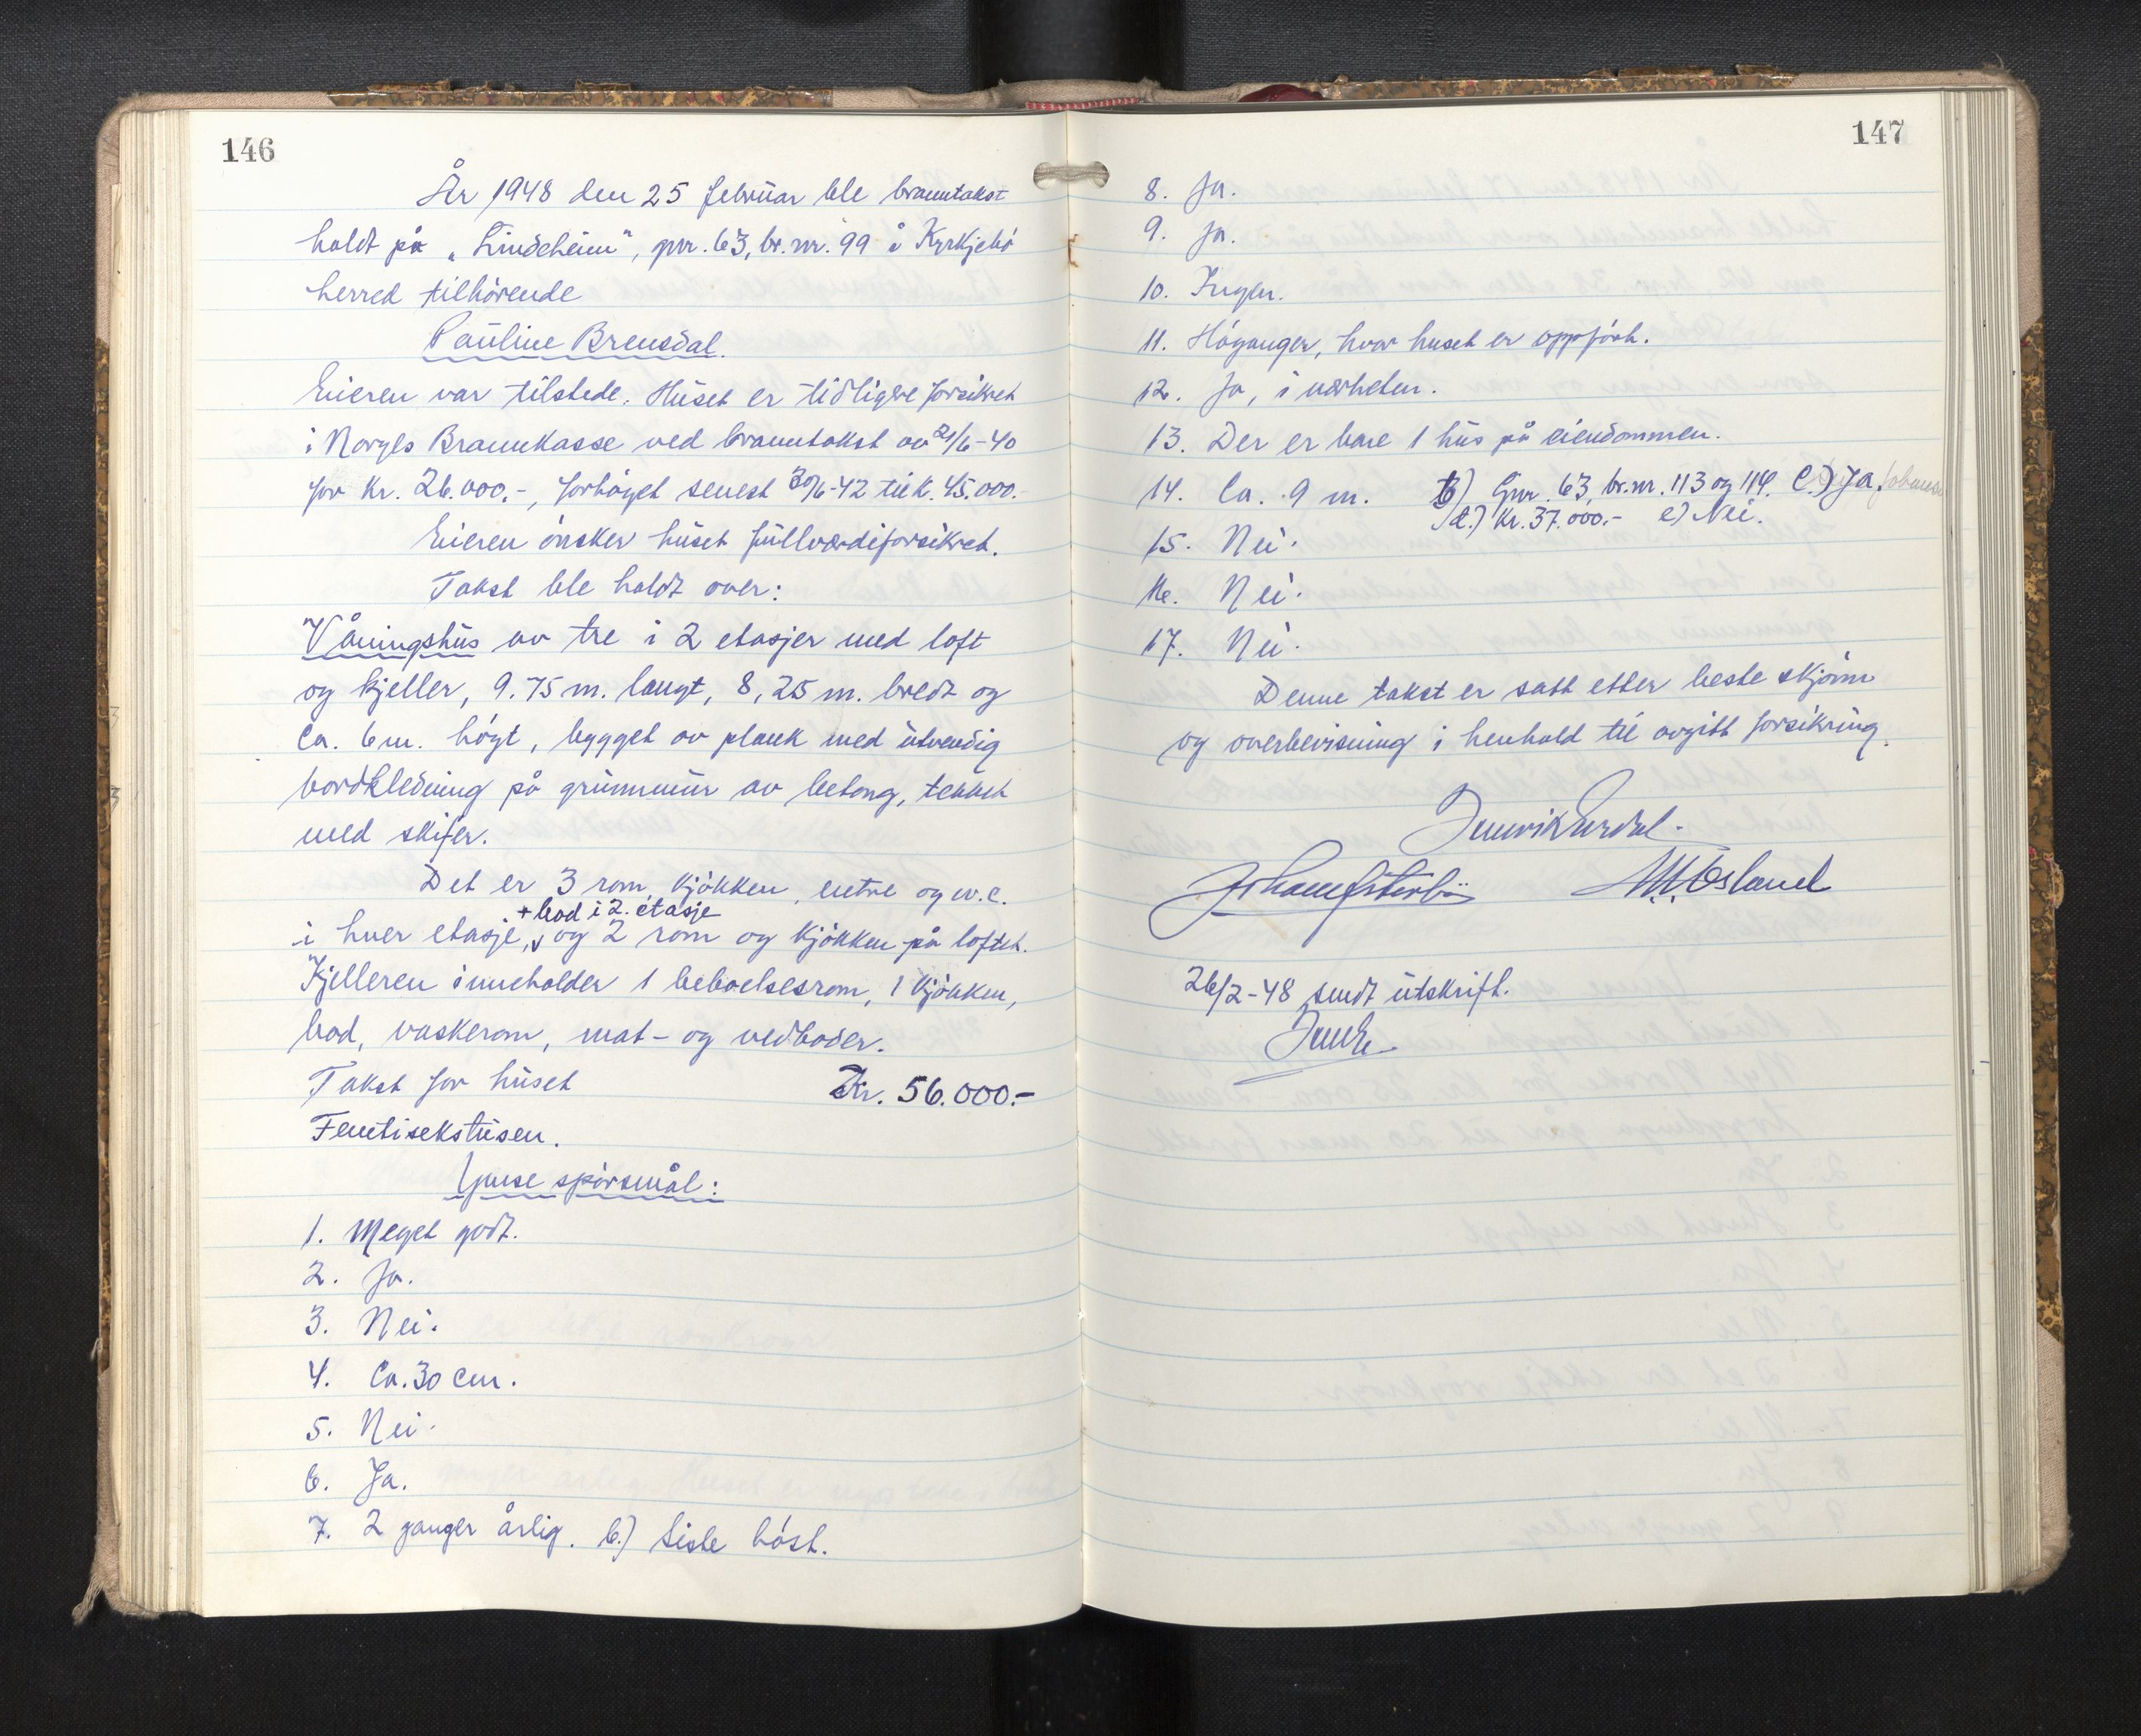 146
År 1948 den 25 februar ble branntakst
holdt på „Lindeheim", gnr. 63, br. nr. 99 i Kyrkjebø
herred tilhørende
Pauline Brensdal.
Eieren var tilstede. Huset er tidligere forsikret
i Norges Brannkasse ved branntakst av 21/6-40
for kr. 26.000.-, forhøyet senest 30/6-42 til k. 45.000.-
Eieren ønsker huset fullverdiforsikret.
Takst ble holdt over:
Våningshus av tre i 2 etasjer med loft
og kjeller, 9.75 m. langt, 8,25 m. bredt og
ca. 6 m. høgt, bygget av plank med utvendig
bordkledning på grunnmur av betong, tekket
med skifer.
Det er 3 rom, kjøkken, entre og w.c.
+ bod i 2. etasje
i hver etasje, og 2 rom og kjøkken på loftet.
Kjelleren inneholder 1 beboelsesrom, 1 kjøkken,
bod, vaskerom, mat- og vedboder.
Takst for huset Kr. 56.000.-
Femtisekstusen.
Ymse spørsmål:
1. Meget godt.
2. Ja.
3. Nei.
4. Ca. 30 cm.
5. Nei.
6. Ja.
7. 2 ganger årlig. b.) Siste høst.
147
8. Ja.
9. Ja.
10. Ingen.
11. Høyanger, hvor huset er oppført.
12. Ja, i nærheten.
13. Der er bare 1 hus på eiendommen.
14. Ca. 9 m. b) Gnr. 63, br. nr. 113 og 114. C.) Ja.
d.) Kr. 37.000.- e) Nei.
15. Nei.
16. Nei.
17. Nei.
Denne takst er satt etter beste skjønn
og overbevisning i henhold til avgitt forsikring.
26/2-48 sendt utskrift.